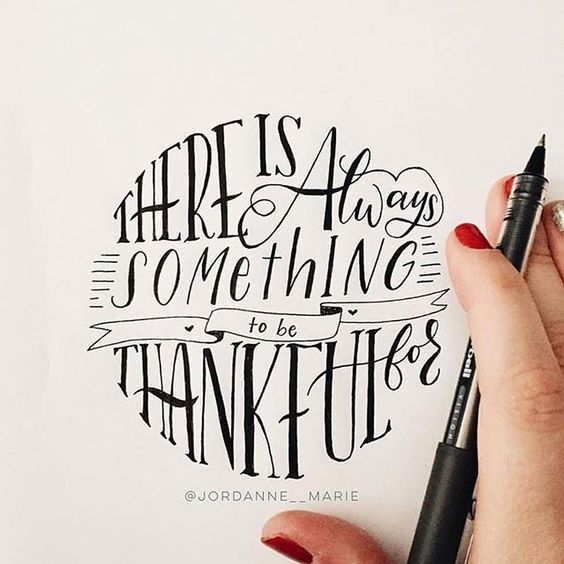 THERE IS Always
SOMEthING
to be
THANKFUL for
@JORDANNE__MARIE
bell
VISION